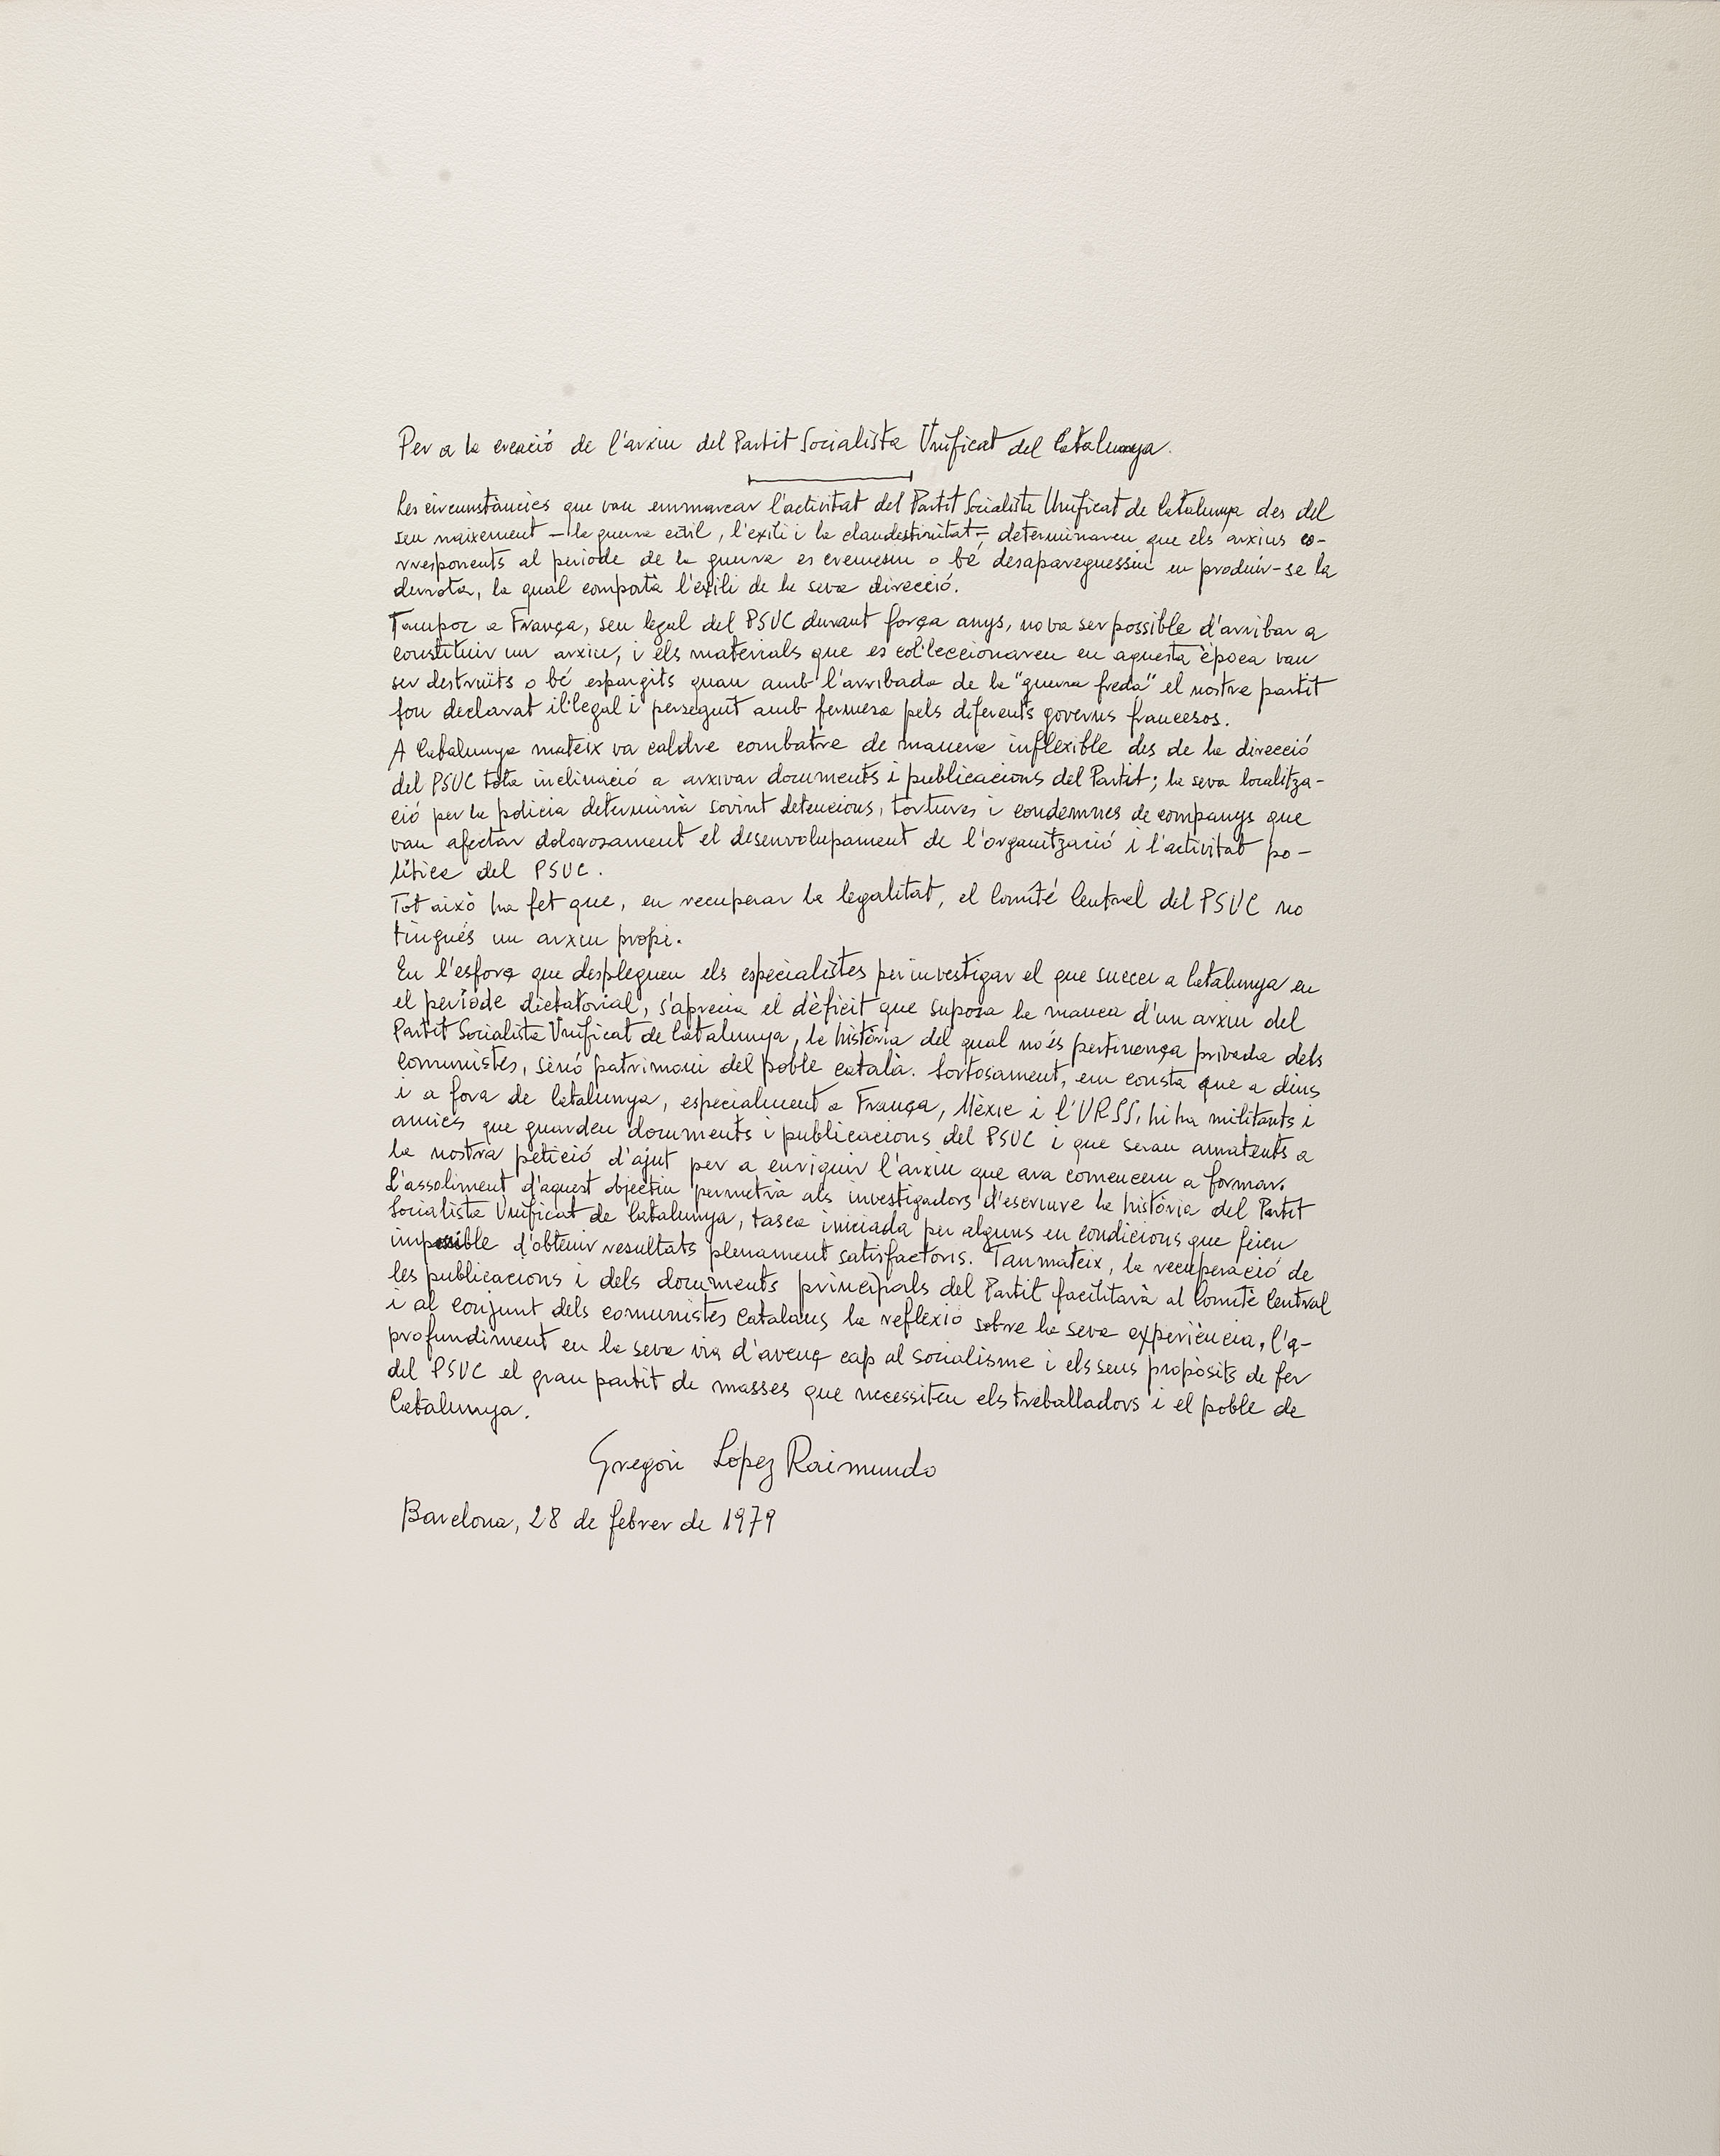 Per a la creació de l'arxiu del Partit Socialista Unificat del Catalunya.
Les circumstàncies que van emmarcar l'activitat del Partit Socialista Unificat de Catalunya des del
seu naixement – la guerra civil, l'exili i la clandestinitat –, determinaren que els arxius co-
rresponents al període de la guerra es cremesin o bé desapareguessin en produir-se la
derrota, la qual comportà l'exili de la seva direcció.
Tampoc a França, seu legal del PSUC durant força anys, no va ser possible d'arribar a
constituir un arxiu, i els materials que es col·leccionaren en aquesta època van
ser destruïts o bé espargits quan amb l'arribada de la "guerra freda" el nostre partit
fou declarat il·legal i perseguit amb fermesa pels diferents governs francesos.
A Catalunya mateix va caldre combatre de manera inflexible des de la direcció
del PSUC tota inclinació a arxivar documents i publicacions del Partit; la seva localitza-
ció per la policia determinà sovint detencions, tortures i condemnes de companys que
van afectar dolorosament el desenvolupament de l'organització i l'activitat po-
lítica del PSUC.
Tot això ha fet que, en recuperar la legalitat, el Comité Central del PSUC no
tingués un arxiu propi.
En l'esforç que despleguen els especialistes per investigar el que succeí a Catalunya en
el període dictatorial, s'aprecia el dèficit que suposa la manca d'un arxiu del
Partit Socialista Unificat de Catalunya, la història del qual no és pertinença privada dels
comunistes, sinó patrimoni del poble català. Sortosament, em consta que a dins
i a fora de Catalunya, especialment a França, Mèxic i l'URSS, hi ha militants i
amics que guarden documents i publicacions del PSUC i que seran amatents a
la nostra petició d'ajut per a enriquir l'arxiu que ara comencem a formar.
L'assoliment d'aquest objectiu permetrà als investigadors d'escriure la història del Partit
Socialista Unificat de Catalunya, tasca iniciada per alguns en condicions que feien
impossible d'obtenir resultats plenament satisfactoris. Tanmateix, la recuperació de
les publicacions i dels documents principals del Partit facilitarà al Comitè Central
i al conjunt dels comunistes catalans la reflexió sobre la seva experiència, l'a-
profundiment en la seva via d'avenç cap al socialisme i els seus propòsits de fer
del PSUC el gran partit de masses que necessiten els treballadors i el poble de
Catalunya.
Gregori López Raimundo
Barcelona, 28 de febrer de 1979